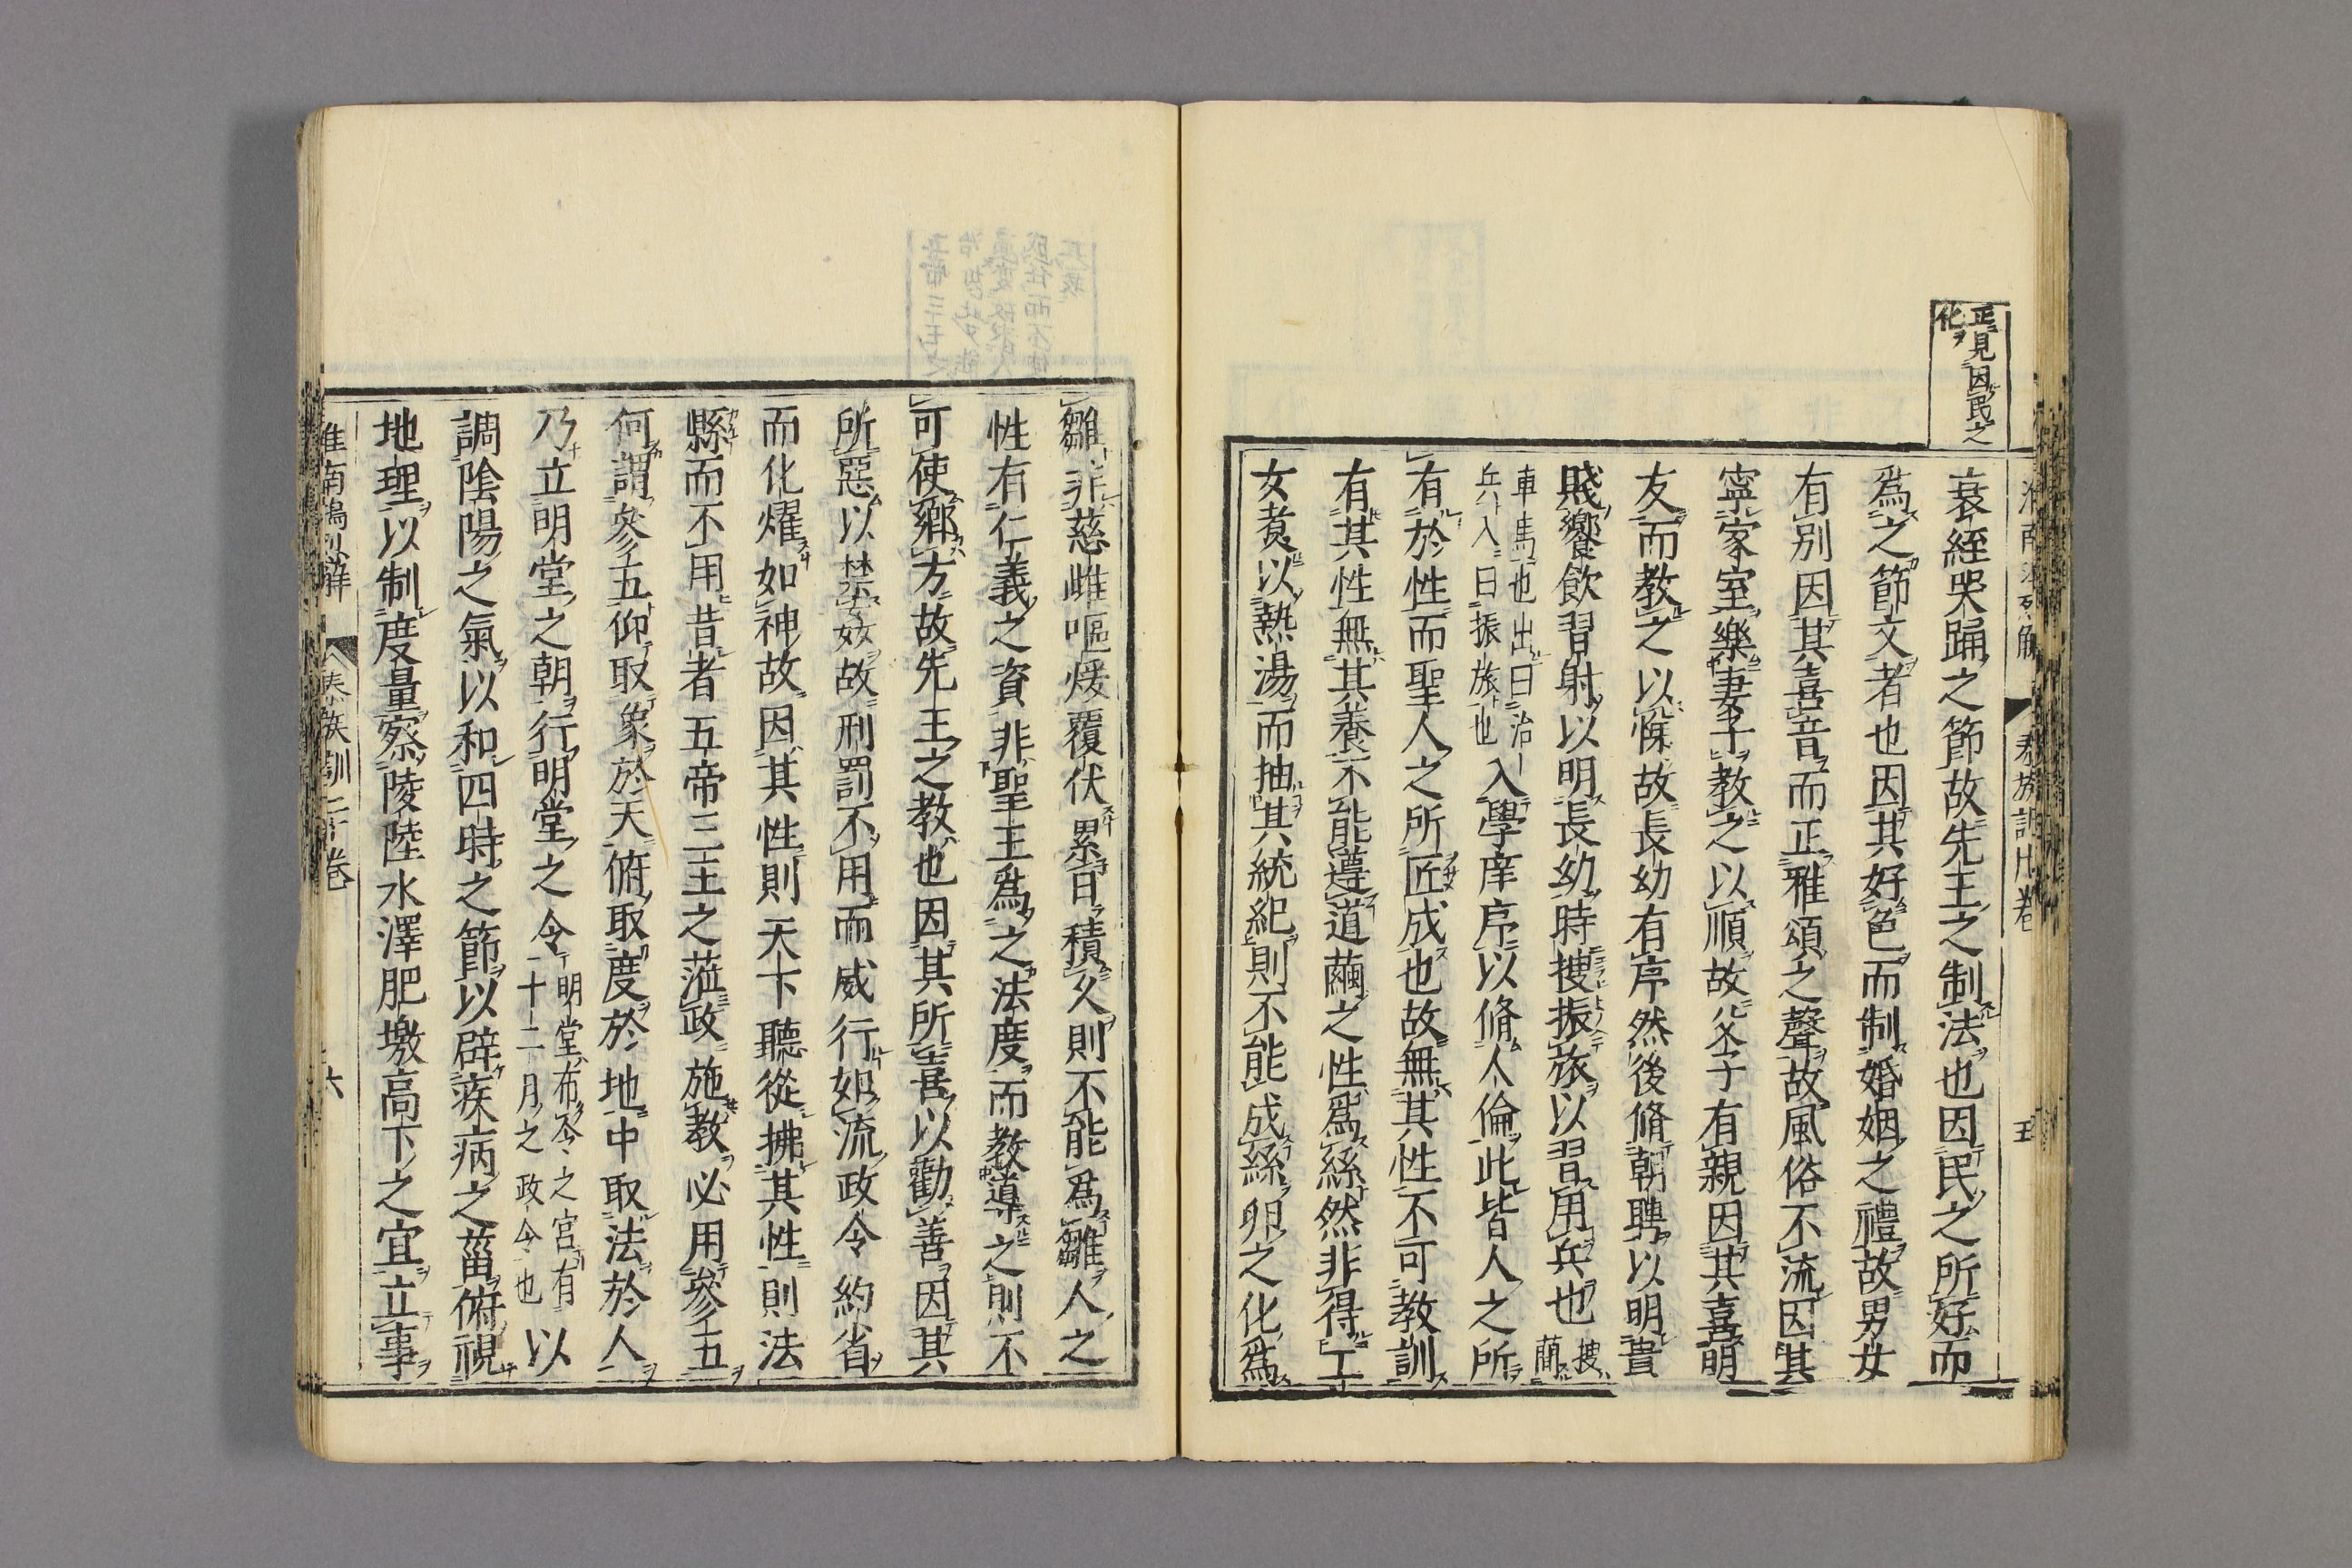 正見因民之
化
衰絰哭踊之節故先王之制法也因民之所好而
爲之節文者也因其好色而制婚姻之禮故男女
有別因其喜音而正雅頌之聲故風俗不流因其
寧家室樂妻子教之以順故父子有親因其喜明
友而教之以悌故長幼有序然後脩朝聘以明貴
賤饗飲習射以明長幼時捜振旅以習用兵也捜蕳
車馬也出曰治
兵入曰振旅也入學庠序以脩人倫此皆人之所
有於性而聖人之所匠成也故無其性不可教訓
有其性無其養不能遵道繭之性爲絲然非得工
女煮以熱湯而抽其統紀則不能成絲卵之化爲
雛非慈雌嘔煖覆伏累日積久則不能爲雛人之
性有仁義之資非聖王爲之法度而教導之則不
可使鄉方故先王之教也因其所喜以勸善因其
所惡以禁姦故刑罰不用而威行如流政令約省
而化燿如神故因其性則天下聽從拂其性則法
縣而不用昔者五帝三王之蒞政施教必用參五
何謂參五仰取象於天俯取度於地中取法於人
乃立明堂之朝行明堂之令明堂布令之宮有
十二月之政令也以
調陰陽之氣以和四時之節以辟疾病之菑俯視
地理以制度量察陵陸水澤肥墽高下之宜立事
淮南鴻烈解 泰族訓二十卷 六